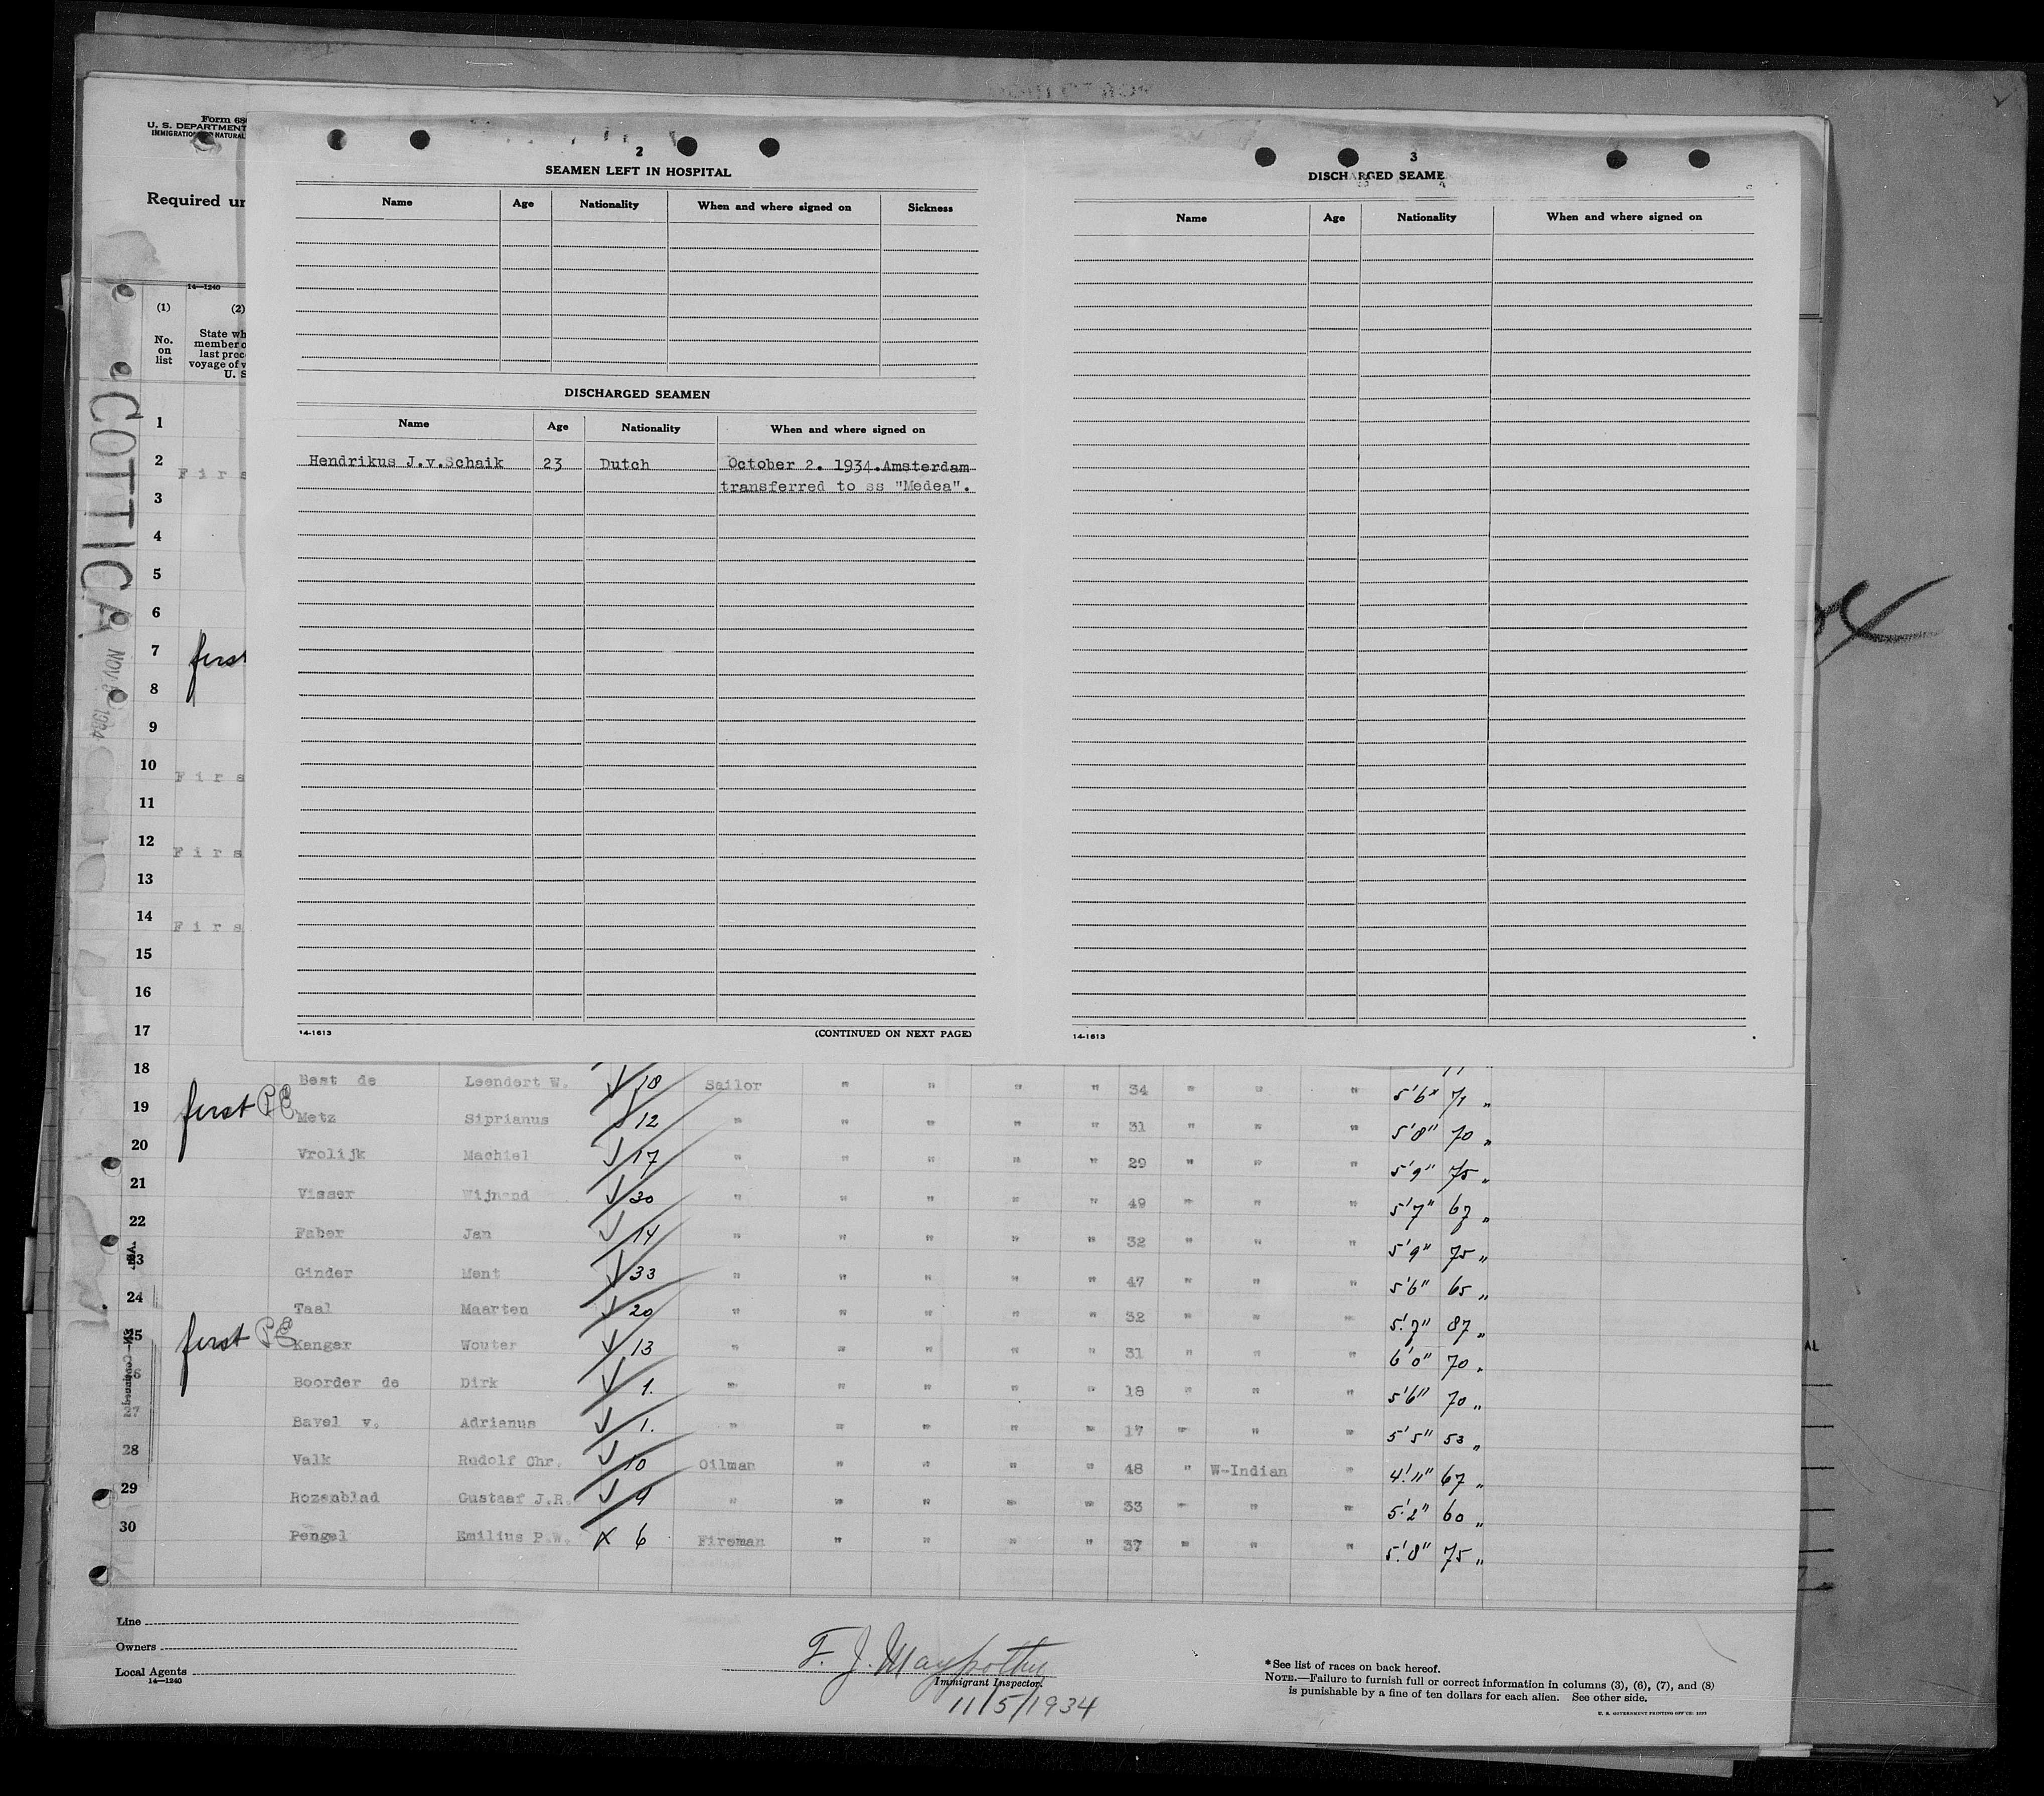 Form 68
U. S. DEPARTMENT
IMMIGRATION NATURAL
Required un
14—1240
(1) (2)
No. on list
State wh
member o
last prec
voyage of v
U. S
COTTICA NOV 1934
2
SEAMEN LEFT IN HOSPITAL
Name Age Nationality When and where signed on Sickness
DISCHARGED SEAMEN
Name Age Nationality When and where signed on
Hendrikus J.v.Schaik 23 Dutch October 2. 1934.Amsterdam
transferred to ss "Medea".
14-1613 (CONTINUED ON NEXT PAGE)
3
DISCHARGED SEAME
Name Age Nationality When and where signed on
14-1613
1
2 Firs
3
4
5
6
7 first
8
9
10 Firs
11
12 Firs
13
14 Firs
15
16
17
18 Best de Leendert W. √ 10 Sailor " " " " 34 " " " 5'6" 71 "
19 first PE Metz Siprianus √ 12 " " " " " 31 " " " 5'8" 70 "
20 Vrolijk Machiel √ 17 " " " " " 29 " " " 5'9" 75 "
21 Visser Wijnand √ 30 " " " " " 49 " " " 5'7" 67 "
22 Faber Jan √ 14 " " " " " 32 " " " 5'9" 75 "
23 Ginder Ment √ 33 " " " " " 47 " " " 5'6" 65 "
24 Taal Maarten √ 20 " " " " " 32 " " " 5'7" 87 "
25 first PE Kanger Wouter √ 13 " " " " " 31 " " " 6'0" 70 "
26 Boorder de Dirk √ 1. " " " " " 18 " " " 5'6" 70 "
27 Bavel v. Adrianus √ 1. " " " " " 17 " " " 5'5" 53 "
28 Valk Rudolf Chr. √ 10 Oilman " " " " 48 " W-Indian " 4'11" 67 "
29 Rozenblad Gustaaf J.R. √ 4 " " " " " 33 " " " 5'2" 60 "
30 Pengel Emilius P.W. x 6 Fireman " " " " 37 " " " 5'8" 75 "
Line
Owners
Local Agents
14—1240
F. J. Maypothy
Immigrant Inspector.
11/5/1934
*See list of races on back hereof.
NOTE.—Failure to furnish full or correct information in columns (3), (6), (7), and (8)
is punishable by a fine of ten dollars for each alien. See other side.
U. S. GOVERNMENT PRINTING OFFICE:
AL